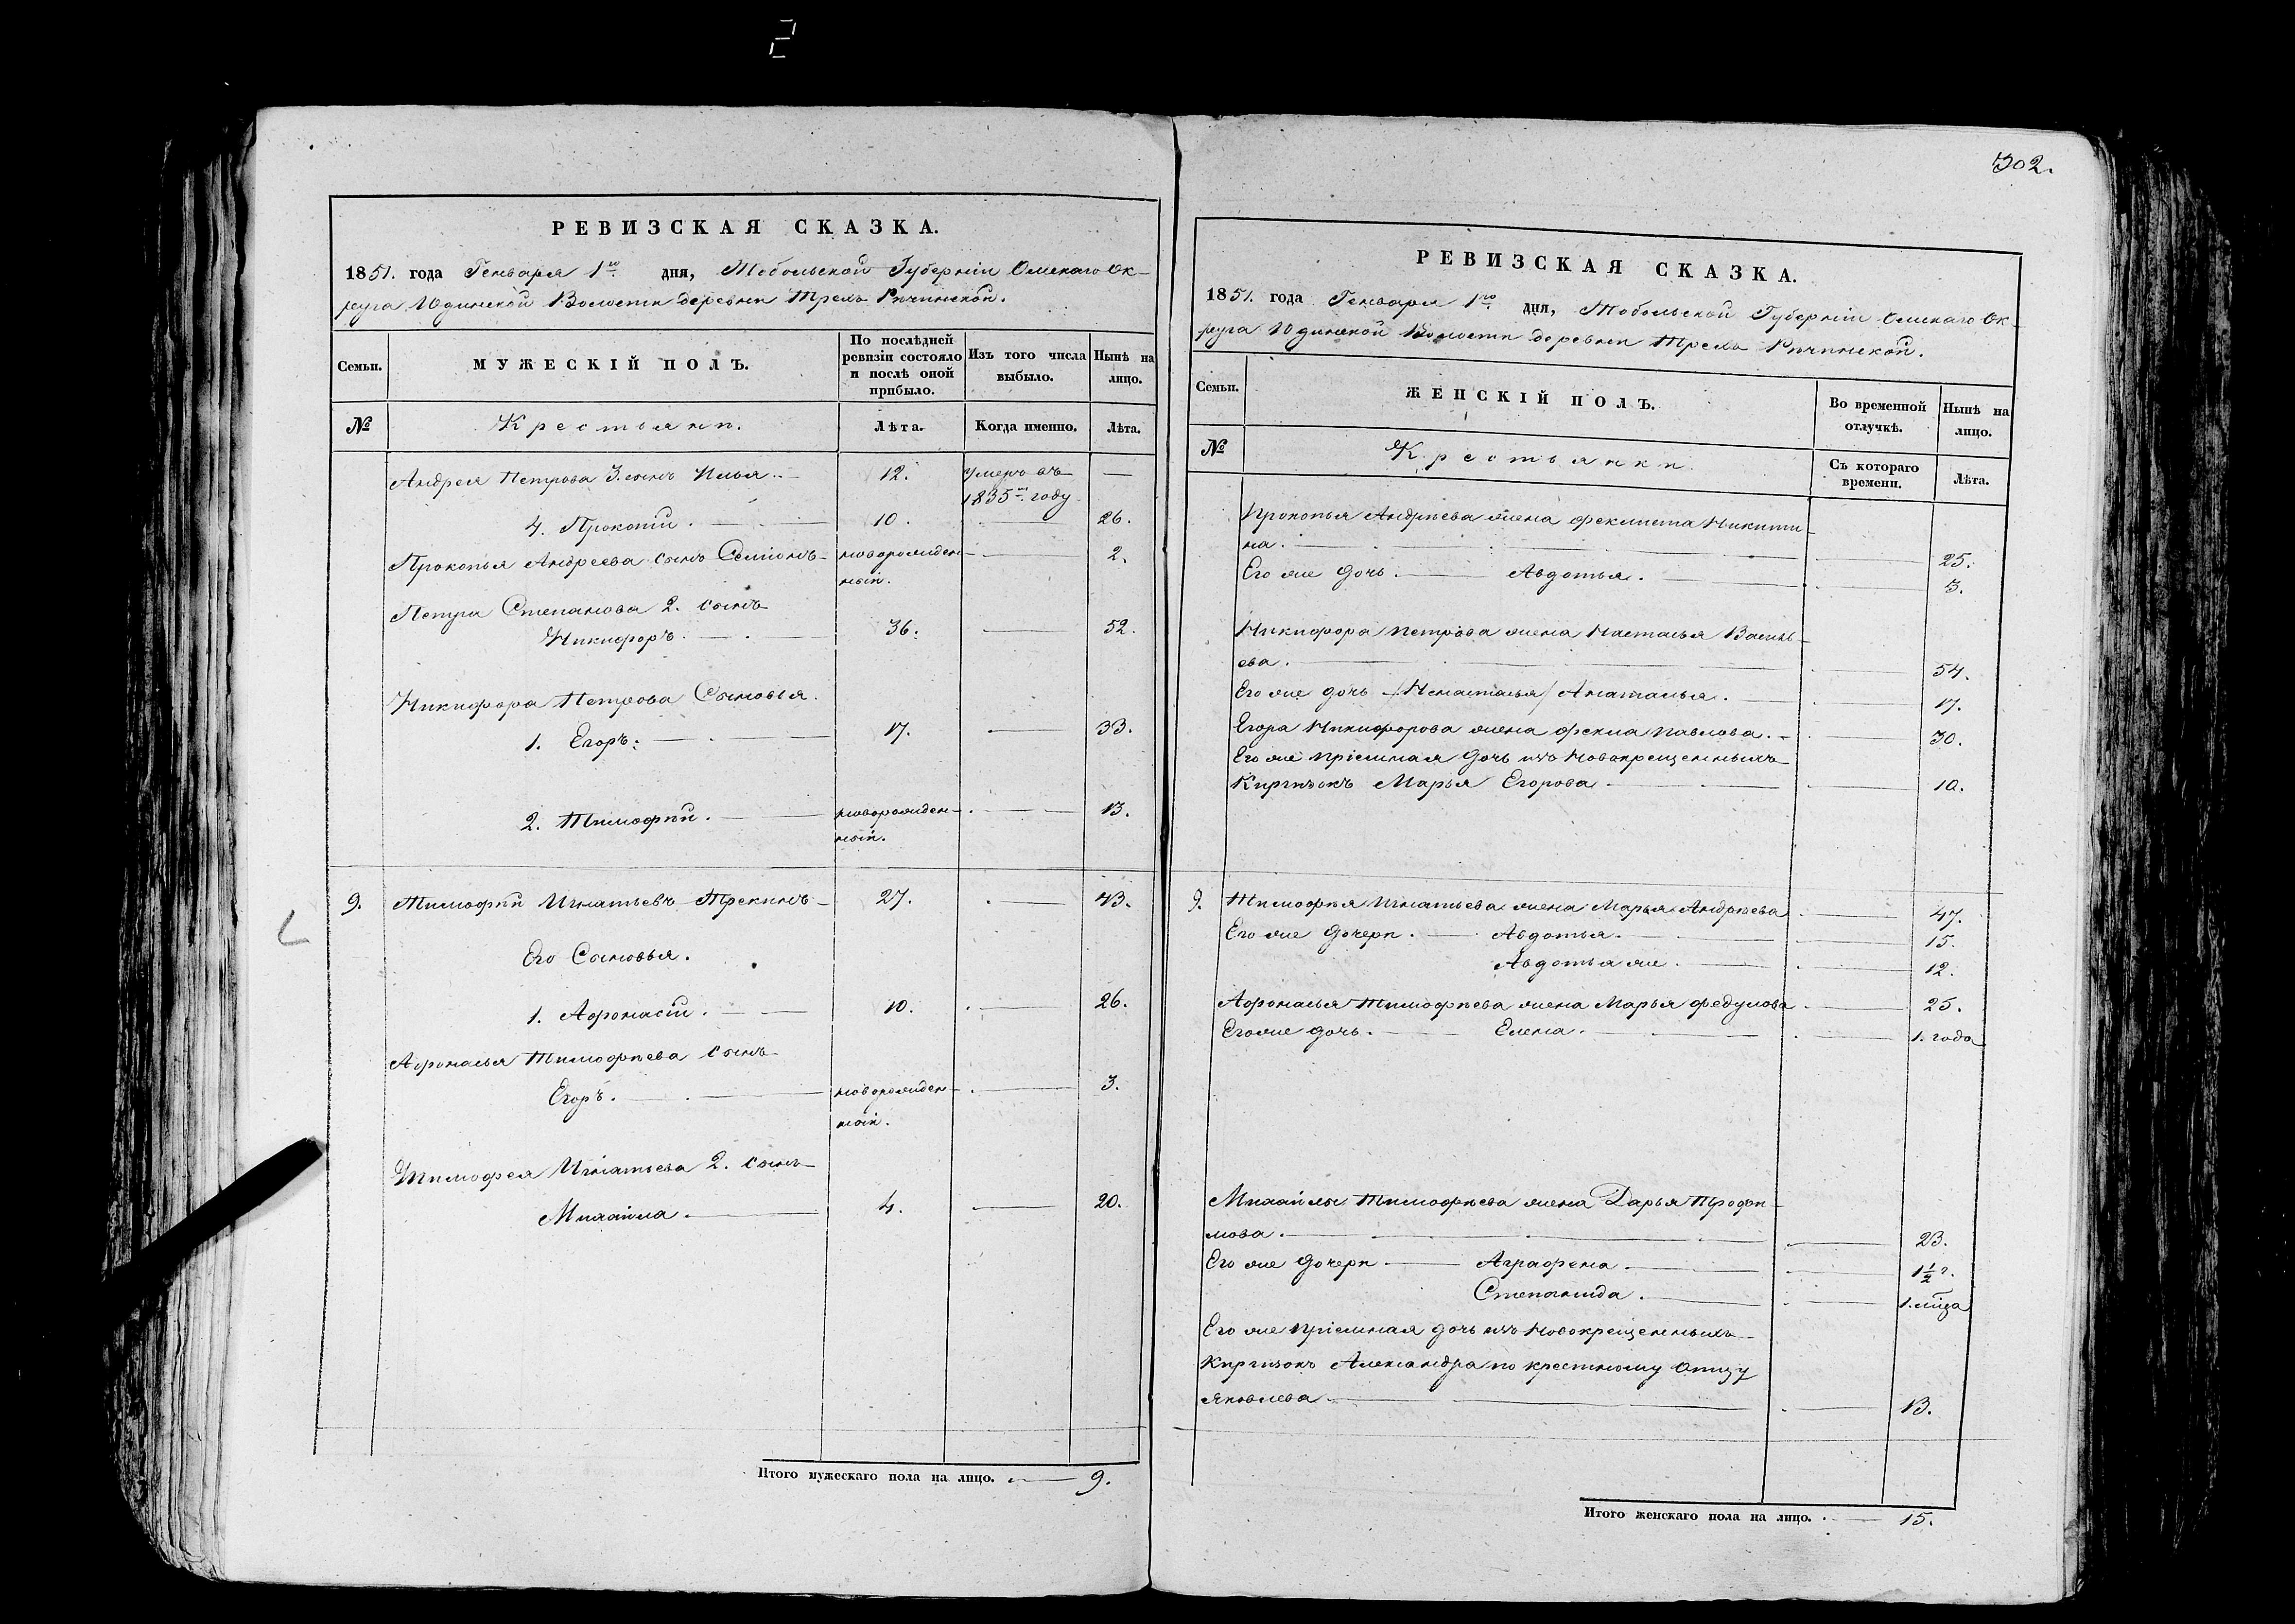 2
302.
РЕВИЗСКАЯ СКАЗКА.
1851. года Генваря 1го дня, Тобольской Губерніи Омскаго Ок-
руга Юдинской Волости деревни Трехъ Ричинской.
Семьи. МУЖЕСКІЙ ПОЛЪ. По послѣдней ревизіи состояло и послѣ оной прибыло. Изъ того числа выбыло. Нынѣ на лицо.
№ Крестьяни. Лѣта. Когда именно. Лѣта.
Андрея Петрова 3. сынъ Илья. 12. умеръ въ —
1835мъ году
4. Прокопій. 10. — 26.
Прокопья Андреева сынъ Семіонъ новорожден- — 2.
ный.
Петра Степанова 2. сынъ
Никифоръ. 36. — 52.
Никифора Петрова Сыновья.
1. Егоръ: 17. — 33.
2. Тимофѣй. новорожден- — 13.
ный.
9. Тимофѣй Игнатьевъ Трекинъ 27. — 43.
Его Сыновья.
1. Афонасій. 10. — 26.
Афонасья Тимофѣева сынъ
Егоръ. новорожден- — 3.
ный.
Тимофея Игнатьева 2. сынъ
Михаила. 4. — 20.
Итого мужескаго пола на лицо. — 9.
РЕВИЗСКАЯ СКАЗКА.
1851. года Генваря 1го дня, Тобольской Губерніи Омскаго Ок-
руга Юдинской Волости деревни Трехъ Ричинской.
Семьи. ЖЕНСКІЙ ПОЛЪ. Во временной отлучкѣ. Нынѣ на лицо.
№ Крестьянки. Съ котораго времени. Лѣта.
Прокопья Андрѣева жена Феклиста Никити-
на. — 25.
Его же дочь. — Авдотья. — 3.
Никифора Петрова жена Настасья Василь-
ева. — 54.
Его же дочь /Ненастасья/ Анатасья. — 17.
Егора Никифорова жена Фекла Павлова. — 30.
Его же пріемная дочь изъ Новокрещенныхъ
Киргизокъ Марья Егорова — 10.
9. Тимофѣя Игнатьева жена Марья Андрѣева — 47.
Его же дочери. — Авдотья. — 15.
Авдотья же. — 12.
Афонасья Тимофѣева жена Марья Федулова — 25.
Его же дочь. — Елена. — 1. года
Михайлы Тимофѣева жена Дарья Трофи-
мова. — 23.
Его же дочери — Аграфена. — 1½ г.
Степанида. — 1. мѣца
Его же пріемная дочь изъ Новокрещенныхъ
Киргизокъ Александра по крестному Отцу
Яковлева — 13.
Итого женскаго пола на лицо. — 15.